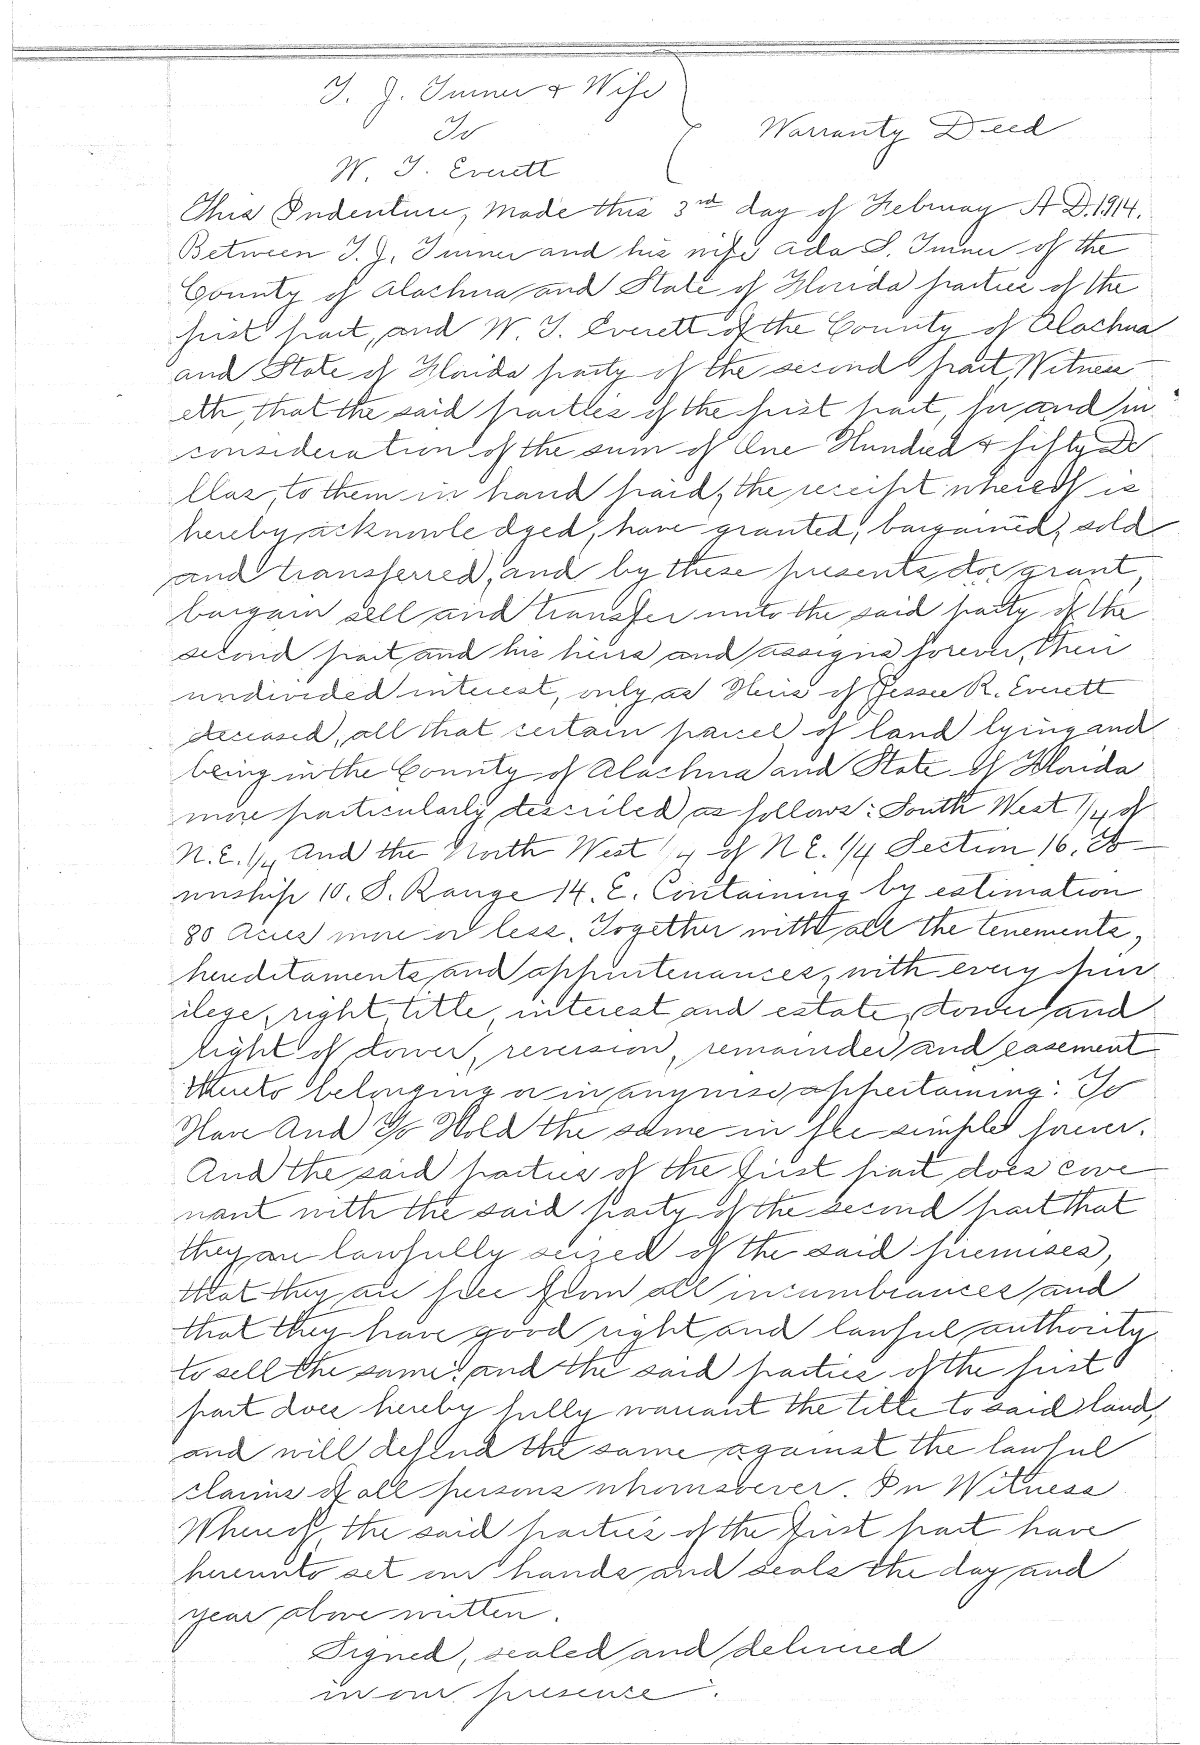 T. J. Turner & Wife
To
Warranty Deed
W. T. Everett
This Indenture, Made this 3rd day of Februay A D. 1914.
Between T. J. Turner and his wife Ada S. Turner of the
County of Alachua and State of Florida parties of the
first part, and W. T. Everett of the County of Alachua
and State of Florida party of the second part, Witness
eth, that the said parties of the first part, for and in
consideration of the sum of One Hundred & fifty Do
llas, to them in hand paid, the receipt whereof is
hereby acknowledged, have granted, bargained, sold
and transferred, and by these presents doe grant,
bargain sell and transfer unto the said party of the
second part and his heirs and assigns forever, their
undivided interest, only as Heirs of Jessee R. Everett
deceased, all that certain parcel of land lying and
being in the County of Alachua and State of Florida
more particularly described as follows: South West 1/4 of
N.E. 1/4 And the North West 1/4 of N E. 1/4 Section 16. To
wnship 10. S. Range 14. E. Containing by estimation
80 Acres more or less. Together with all the tenements,
hereditaments and appurtenances, with every priv
ilege, right, title, interest and estate, dower and
right of dower, reversion, remainder and easement
thereto belonging or in anywise appertaining: To
Have And To Hold the same in fee simple forever.
And the said parties of the first part does cove
nant with the said party of the second part that
they are lawfully seized of the said premises,
that they are free from all incumbrances and
that they have good right and lawful authority
to sell the same: and the said parties of the first
part does hereby fully warrant the title to said land,
and will defend the same against the lawful
claims of all persons whomsoever. In Witness
Whereof, the said parties of the first part have
hereunto set our hands and seals the day and
year above written.
Signed, sealed and delivered
in our presence: